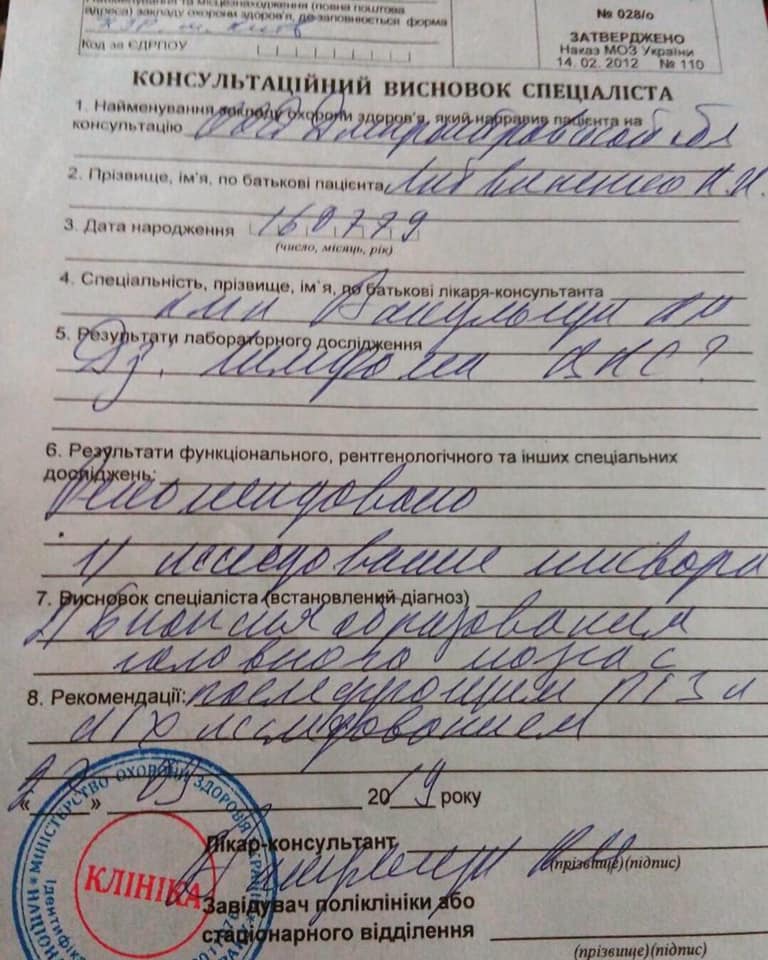 Найменування та місцезнаходження (повна поштова
адреса) закладу охорони здоров'я, де заповнюється форма
м. Київ
Код за ЄДРПОУ
№ 028/о
ЗАТВЕРДЖЕНО
Наказ МОЗ України
14. 02. 2012 № 110
КОНСУЛЬТАЦІЙНИЙ ВИСНОВОК СПЕЦІАЛІСТА
1. Найменування закладу охорони здоров'я, який направив пацієнта на
консультацію
2. Прізвище, ім'я, по батькові пацієнта
3. Дата народження 160779
(число, місяць, рік)
4. Спеціальність, прізвище, ім'я, по батькові лікаря-консультанта
кмн
5. Результати лабораторного дослідження
Дз. лимфома ЦНС?
6. Результати функціонального, рентгенологічного та інших спеціальних
досліджень:
Рекомендовано
1) исследование ликвора
7. Висновок спеціаліста (встановлений діагноз)
2) биопсия образования
головного мозга с
8. Рекомендації: последующим ПГЗ и
ИГХ исследованием
« » 09 2019 року
Лікар-консультант
(прізвище)(підпис)
Завідувач поліклініки або
стаціонарного відділення
(прізвище)(підпис)
МІНІСТЕРСТВО ОХОРОНИ ЗДОРОВ'Я УКРАЇНИ
КЛІНІКА